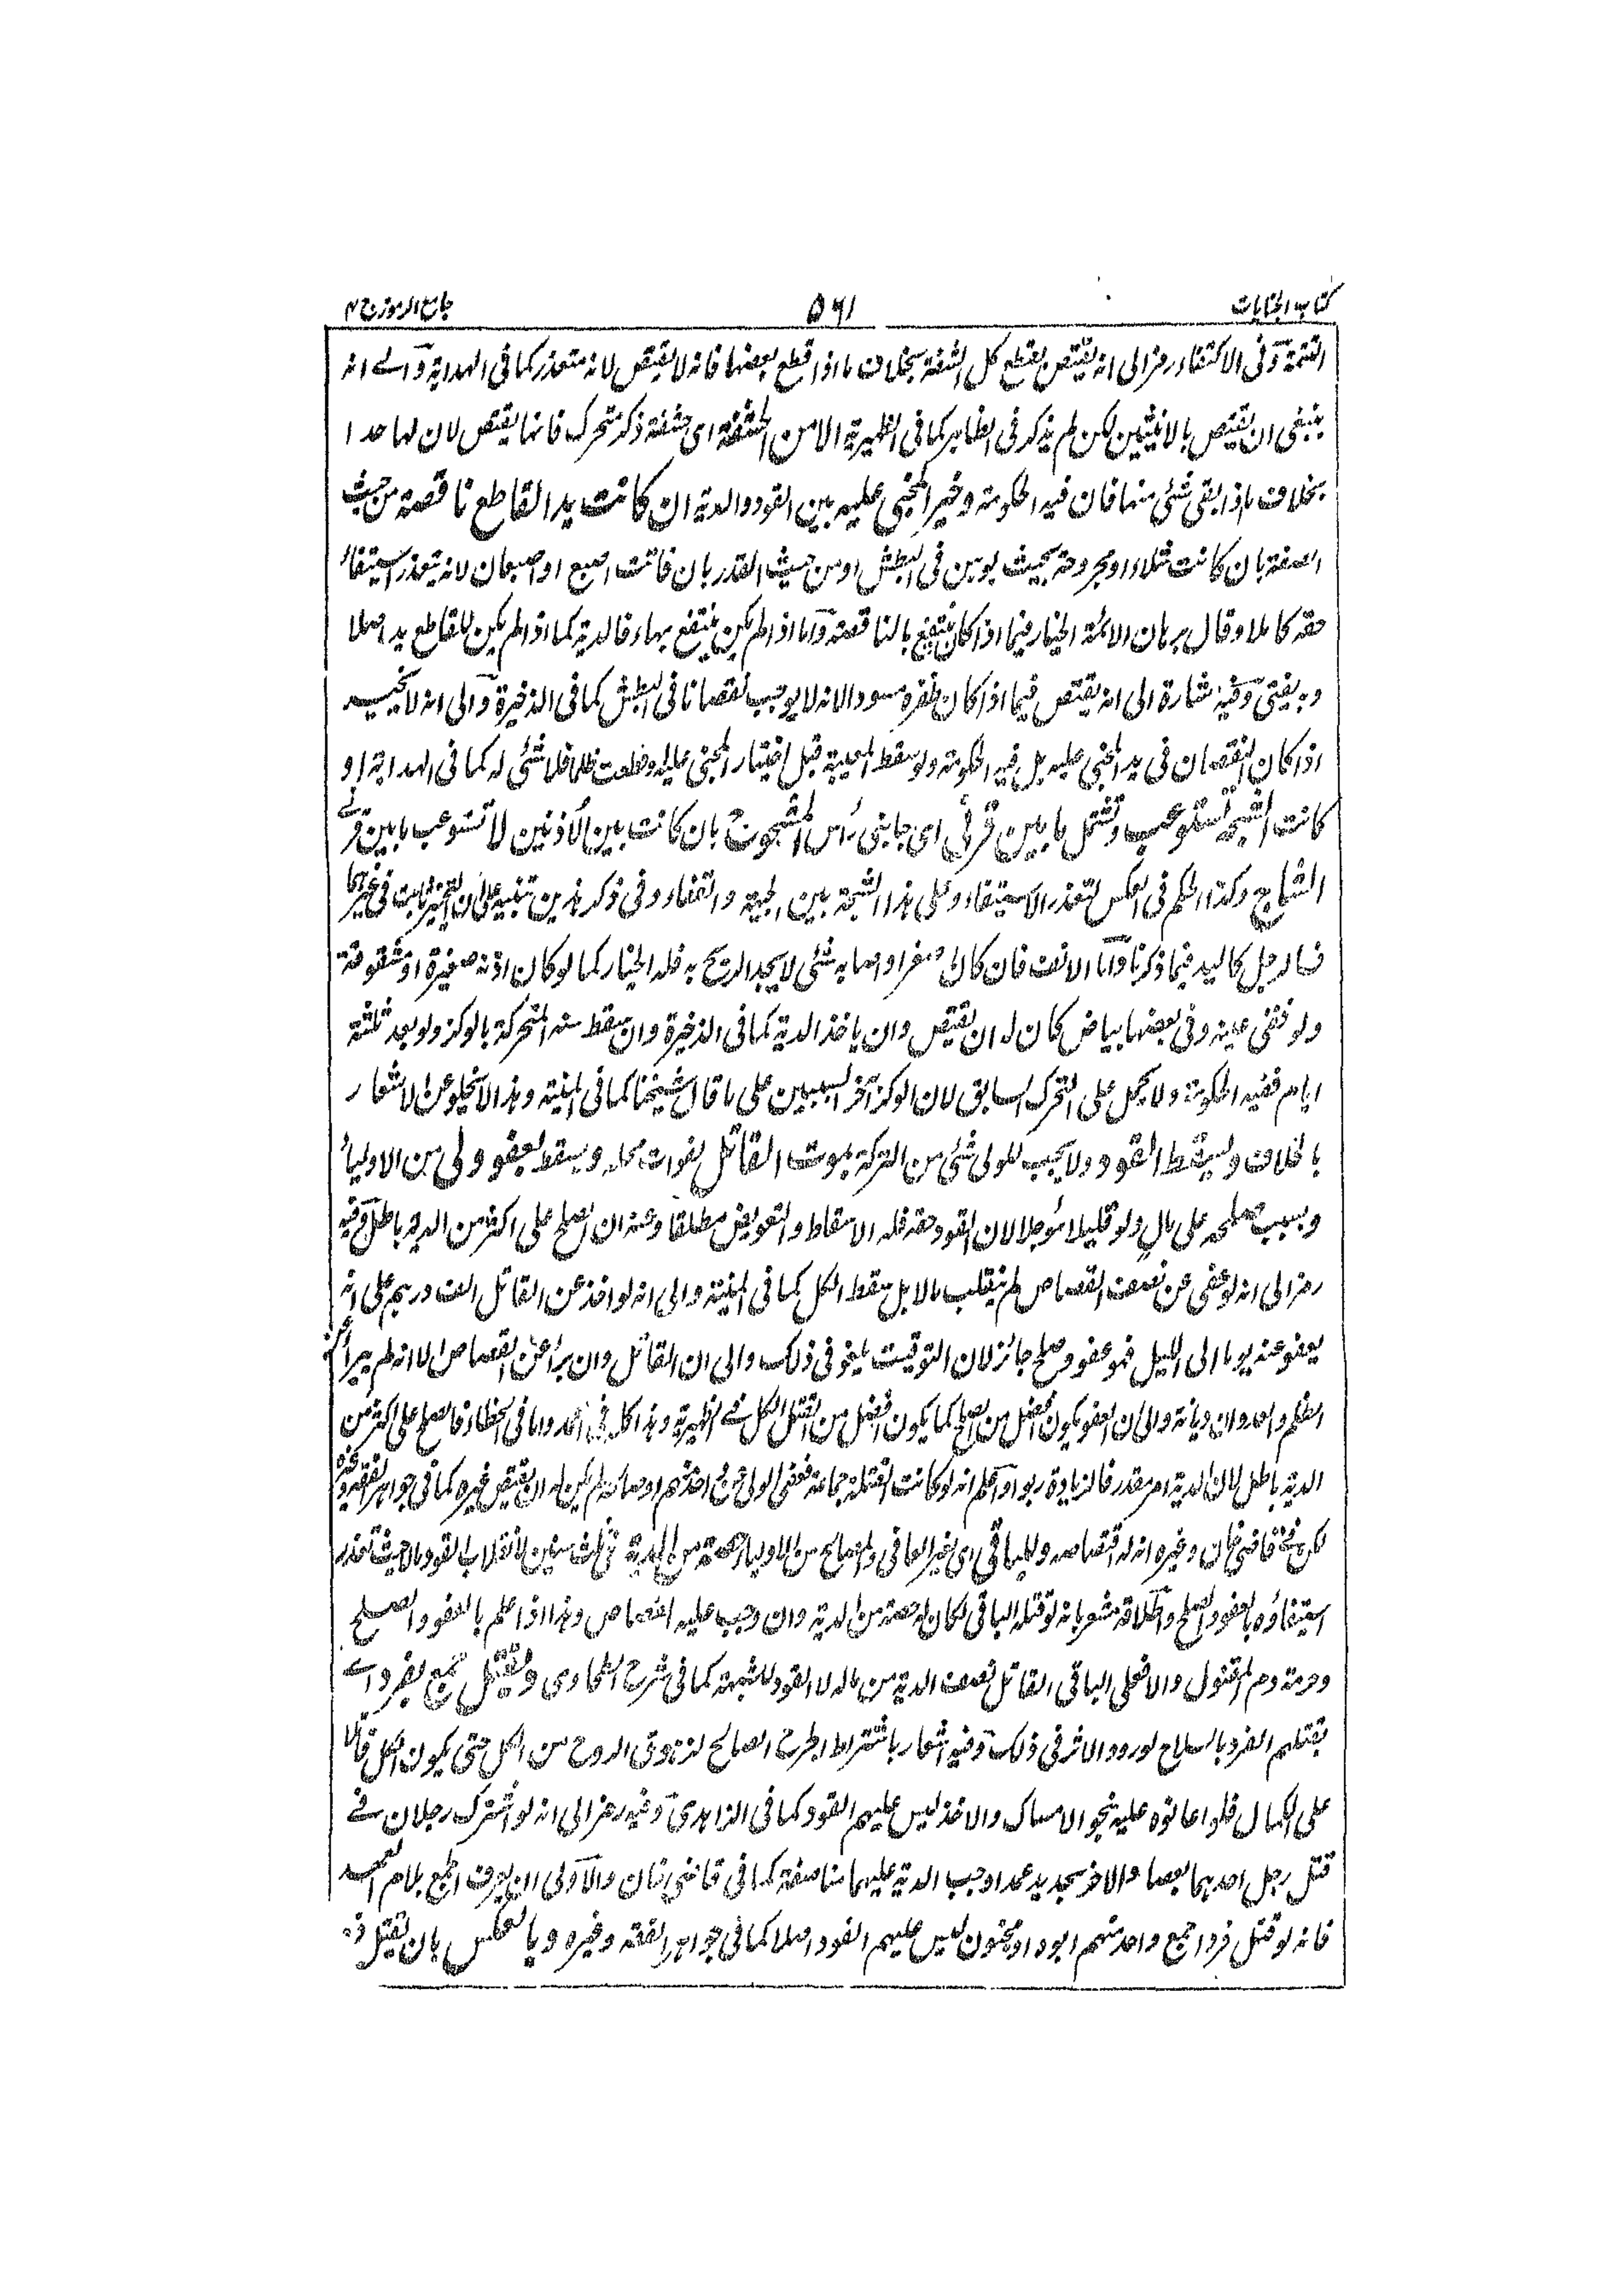 كتاب الجنايات
٥٦١
جامع الرموز ج ٢
التتمة وفى الاكتفاء رمز الى انه يقتص بقطع كل الشفة بخلاف ما اذا قطع بعضها فانه لا يقتص لانه متعذر كما فى الهداية والے انه
ينبغى ان يقتص بالانثيين لكن لم يذكر فى الظاهر كما فى الظهيرية الا من الحشفة اى حشفة ذكر متحرك فانها يقتص لان لها حدا
بخلاف ما اذا بقى شئى منها فان فيه الحكومة وخير المجنى عليه بين القود والدية ان كانت يد القاطع ناقصة من حيث
الصفة بان كانت شلاء او مجروحة بحيث يوهن فى البطش او من حيث القدر بان فاتت اصبع او اصبعان لانه يتعذر استيفاء
حقه كاملا وقال برهان الائمة الخيار فيما اذا كان ينتفع بالناقصة واما اذا لم يكن ينتفع بها فالدية كما اذا لم يكن للقاطع يد اصلا
وبه يفتى وفيه اشارة الى انه يقتص فيما اذا كان ظفره مسودا لانه لا يوجب نقصانا فى البطش كما فى الذخيرة والى انه لا يخير
اذا كان النقصان فى يد المجنى عليه بل فيه الحكومة ولو سقط المعيبة قبل اختيار المجنى عليه او قطعت ظلما فلا شئى له كما فى الهداية او
كانت الشجة تستوعب وتشتمل ما بين قرنى اى جانبى رأس المشجوج بان كانت بين الاذنين لا تستوعب ما بين قرنے
الشاج وكذا الحكم فى العكس لتعذر الاستيفاء وعلى هذا الشجة بين الجبهة والقفاء وفى ذكر هذين تنبيه على ان التخيير ثابت فى غيرهما
فالرجل كاليد فيما ذكرنا واما الانف فان كان اصغر او اصابه شئى لا يجد الريح به فله الخيار كما لو كان اذنه صغيرة او مشقوقة
ولو فقئى عينه وفى بعضها بياض كان له ان يقتص وان ياخذ الدية كما فى الذخيرة وان سقط سنه المتحركة بالوكز ولو بعد ثلثة
ايام ففيه الحكومة ولا يحمل على التحرك السابق لان الوكز آخر السببين على ما قال شيخنا كما فى المنية وهذا لا يخلو عن الاشعار
بالخلاف ويسقط القود ولا يجب للولى شئى من التركة بموت القاتل لفوات محله ويسقط بعفو ولى من الاولياء
وبسبب صلحه على مال ولو قليلا مؤجلا لان القود حقه فله الاسقاط والتعويض مطلقا وعنه ان الصلح على اكثر من الدية باطل وفيه
رمز الى انه لو عفى عن نصف القصاص لم ينقلب مالا بل سقط الكل كما فى المنية والى انه لو اخذ عن القاتل الف درهم على انه
يعفو عنه يوما الى الليل فهو عفو وصلح جائز لان التوقيت يلغو فى ذلك والى ان القاتل وان برأ عن القصاص الا انه لم يبرأ عن
الظلم والعدوان ديانة والى ان العفو يكون افضل من الصلح كما يكون افضل من القتل الكل فے الظهيرية وهذا كله فى العمد واما فى الخطاء فالصلح على اكثر من
الدية باطل لان الدية امر مقدر فالزيادة ربوا واعلم انه لو كانت القتلة جماعة فعفى الولى عن احدهم او صالحه لم يكن له ان يقتص غيره كما فى جواهر الفقه وغيره
لكن فى قاضى خان وغيره انه له اقتصاصه وللباقى اى لغير العافى والمصالح من الاولياء حصته من الدية فى ثلث سنين لانقلاب القود مالا حيث تعذر
استيفاؤه بالعفو والصلح واطلاقه مشعر بانه لو قتله الباقى لكان له حصته من الدية وان وجب عليه القصاص وهذا اذا علم بالعفو والصلح
وحرمة دم المقتول والا فعلى الباقى القاتل نصف الدية من ماله لا القود للشبهة كما فى شرح الطحاوى ويقتل جمع بفرد اے
بقتلهم الفرد بالسلاح لورود الاثر فى ذلك وفيه اشعار باشتراط الجرح الصالح لزهوق الروح من الكل حتى يكون الكل قاتلا
على الكمال فلو اعانوه عليه بنحو الامساك والاخذ ليس عليهم القود كما فى الزاهدى وفيه رمز الى انه لو اشترك رجلان فے
قتل رجل احدهما بعصا والاخر بحديد عمدا وجب الدية عليهما مناصفة كما فى قاضى خان والاولى ان يعرف الجمع بلام العهد
فانه لو قتل فردا جمع واحد منهم ابوه او مجنون ليس عليهم القود اصلا كما فى جواهر الفقه وغيره وبالعكس بان يقتل